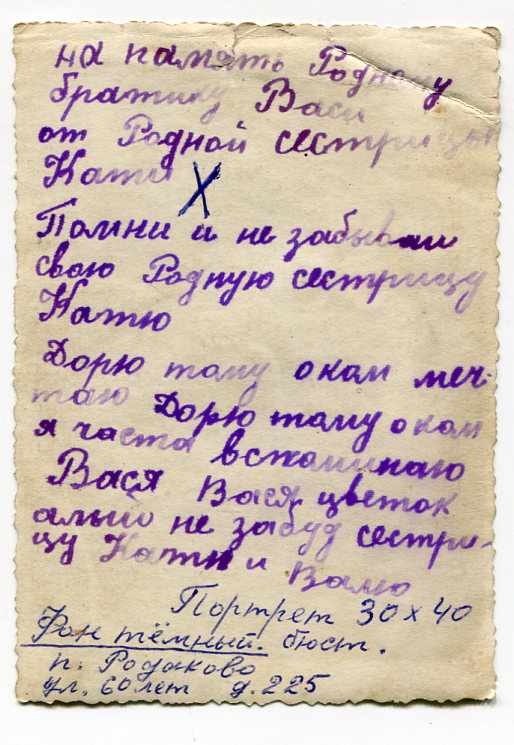 на память Родному
братику Васи
от Родной сестрицы
Кати X
Помни и не забывай
свою Родную сестрицу
Катю
Дорю тому о ком меч-
таю Дорю тому о ком
я часта вспоминаю
Вася Вася цветок
алый не забуд сестри-
цу Катю и Валю
Портрет 30 x 40
Фон тёмный. бюст.
п. Родаково
ул. 60 лет д. 225